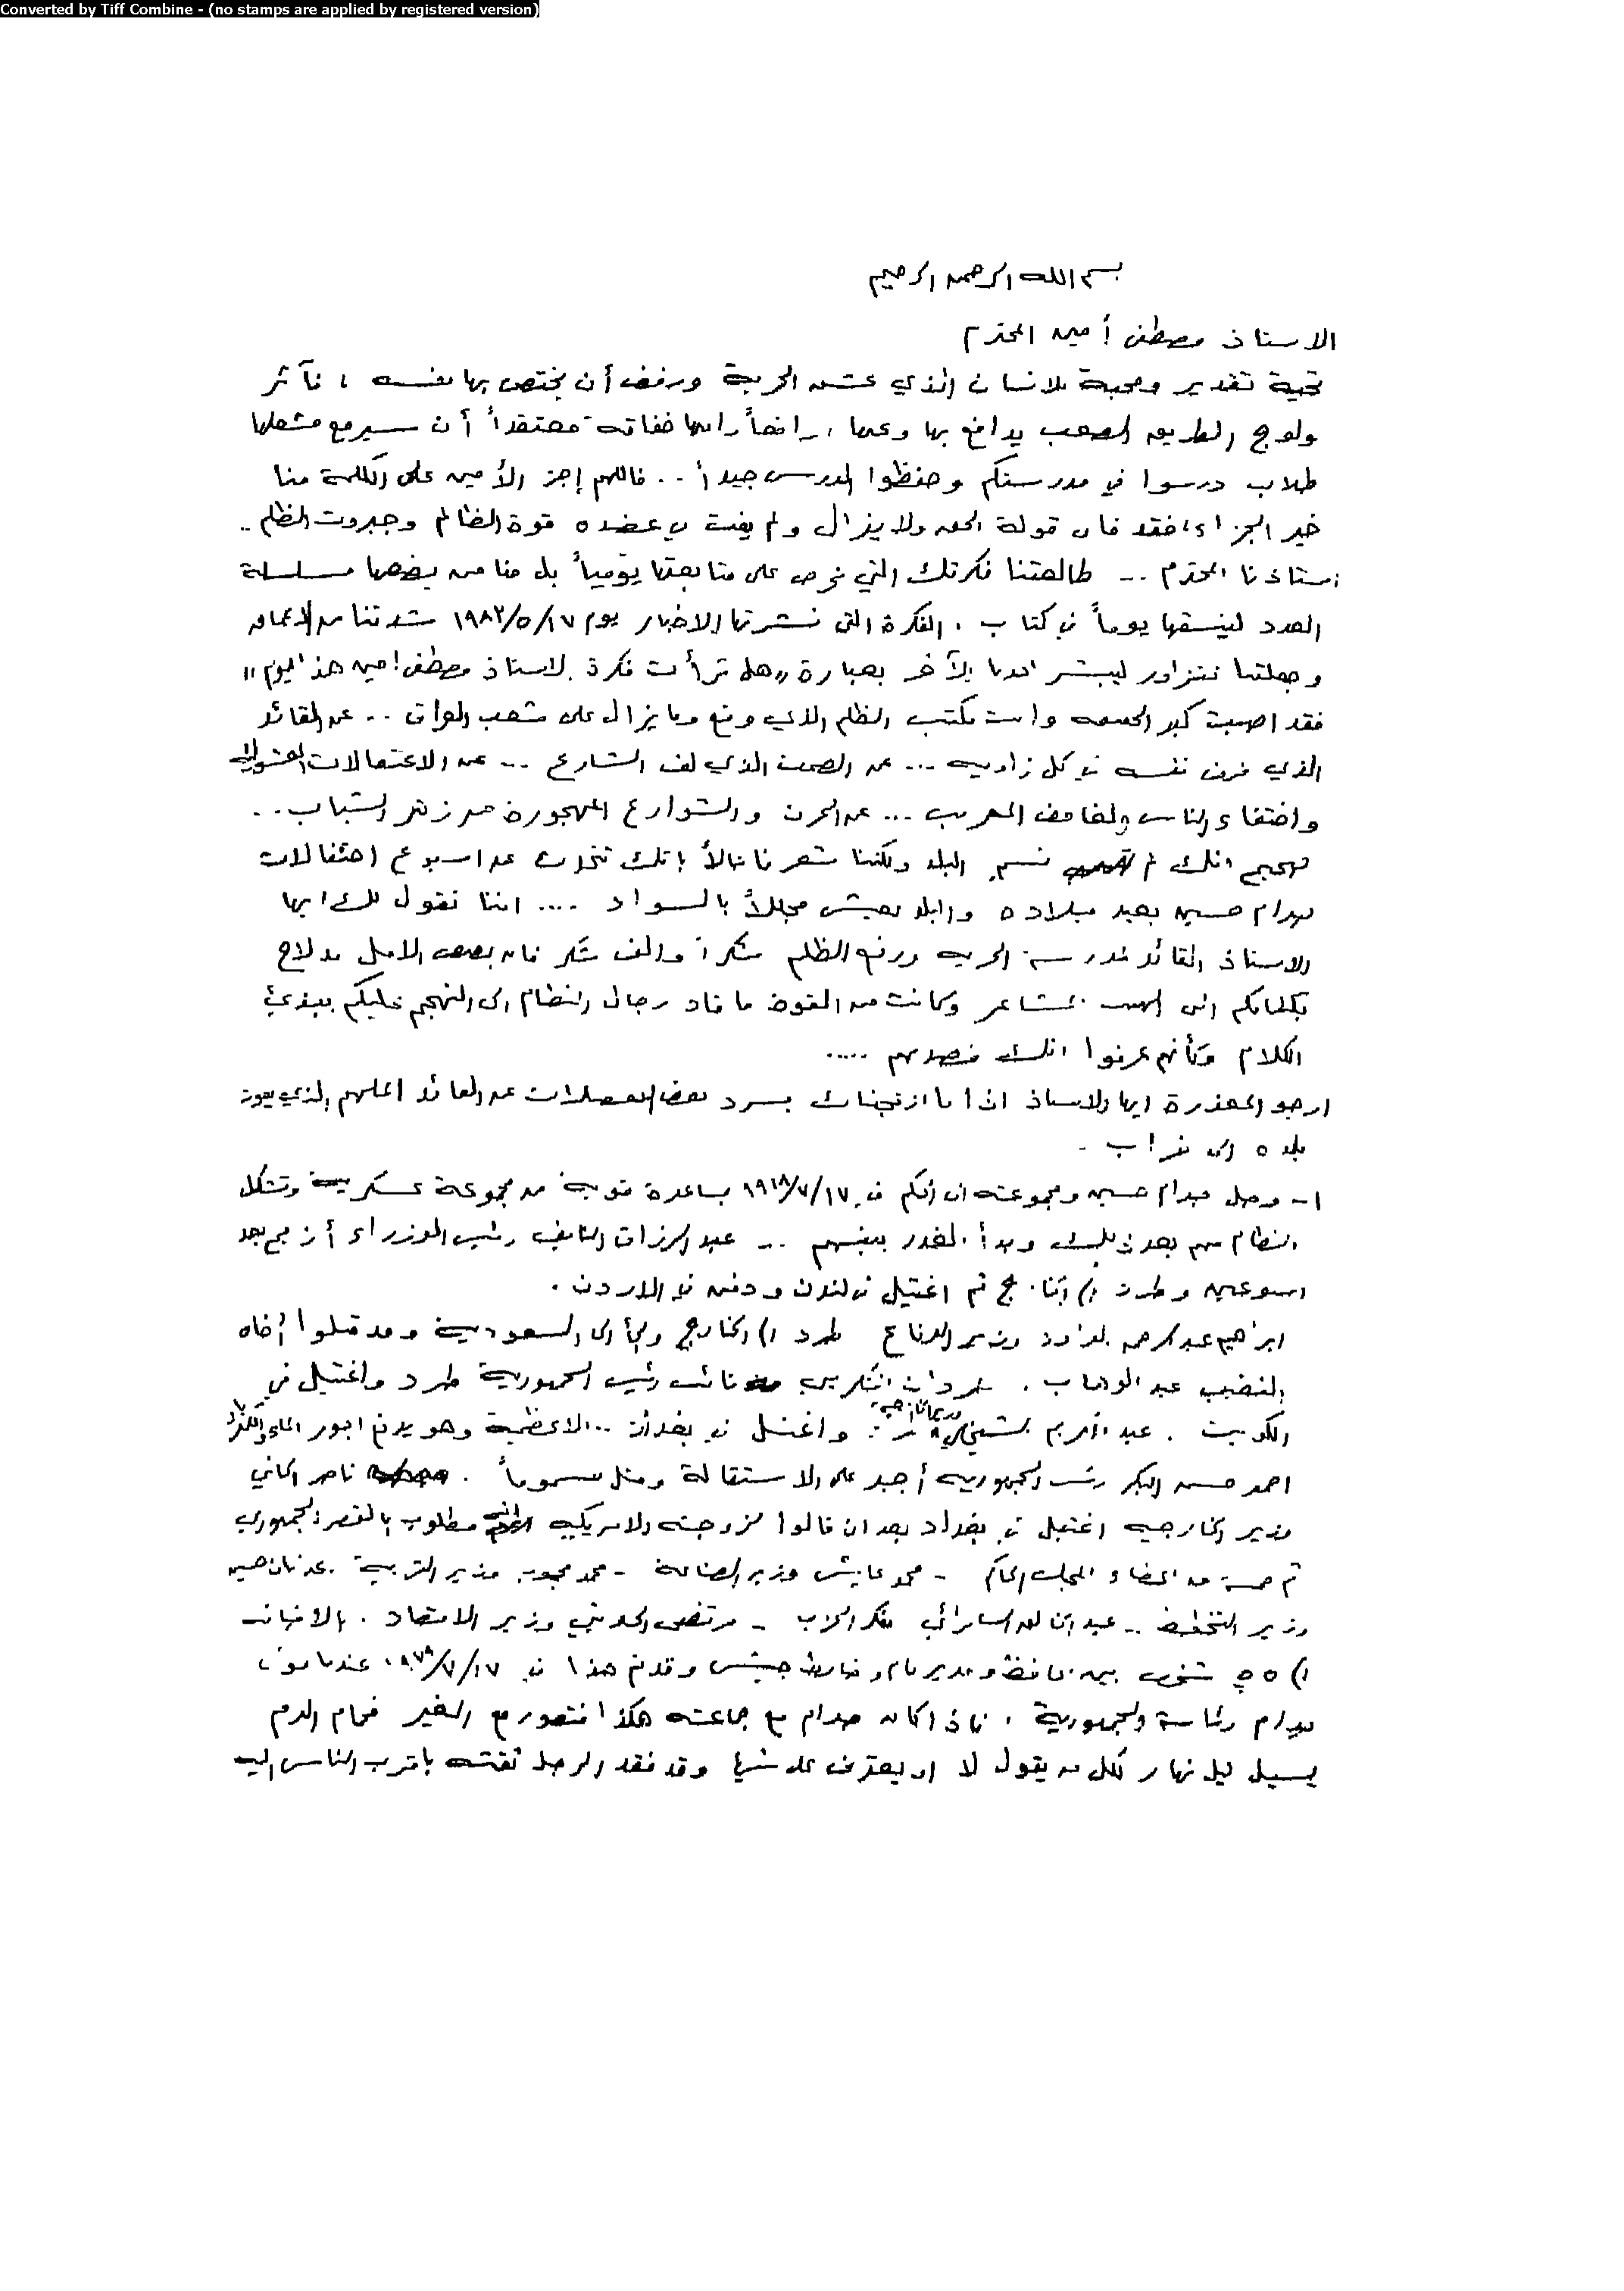 Converted by Tiff Combine - (no stamps are applied by registered version)
بسم الله الرحمن الرحيم
الاستاذ مصطفى أمين المحترم
تحية تقدير ومحبة للانسان الذي عشق الحرية ورفض أن يختص بها نفسه ، فآثر
ولوج الطريق الصعب يدافع بها وعنها ، رافضاً معتقداً أن سيرفع مشعلها
طلاب درسوا في مدرستكم وحفظوا الدرس جيداً .. فاللهم إجز الأمين على الكلمة منا
خير الجزاء ، فقد قال قولة الحق ولا يزال ولم يفت في عضده قوة الظالم وجبروت الظلم ..
استاذنا المحترم .. طالعتنا فكرتك التي نحرص على متابعتها يومياً بل منا من يضعها مسلسلة
العدد لينسقها يوماً في كتاب . الفكرة التي نشرتها الاخبار يوم ١٩٨٢/٥/١٧ شدتنا من الاعماق
وجعلتنا نتزاور ليبشر احدنا الآخر بعبارة ،، هل قرأت فكرة الاستاذ مصطفى امين هذا اليوم ،،
فقد اصبت كبد الحقيقة وانت تكتب الظلم الذي وقع وما يزال على شعب العراق .. عن القائد
الذي فرض نفسه في كل زاوية ... عن الصمت الذي لف الشارع ... عن الاعتقالات العشوائية
واختفاء الناس الغامض المريب ... عن الحزن والشوارع المهجورة من زهر الشباب ..
صحيح انك لم تسم البلد ولكننا شعرنا حالاً بانك تتحدث عن اسبوع احتفالات
صدام حسين بعيد ميلاده والبلد يعيش مجللاً بالسواد .... اننا نقول لك ايها
الاستاذ القائد لمدرسة الحرية ورفع الظلم شكراً والف شكر فان بصيص الامل قد لاح
بكلماتكم التي الهبت المشاعر وكانت من القوة ما قاد رجال النظام الى التهجم عليكم ببذيء
الكلام وكأنهم عرفوا انك قصدتهم .....
ارجو المعذرة ايها الاستاذ اذا ما ازعجناك بسرد بعض التفصيلات عن القائد الملهم الذي يقود
بلده الى خراب .
١- وصل صدام حسين ومجموعته الى الحكم في ١٩٦٨/٧/١٧ بمساعدة قوية من مجموعة عسكرية وتشكل
النظام منهم بعد ذلك وبدأ الغدر ببعضهم .. عبد الرزاق النايف رئيس الوزراء أزيح بعد
اسبوعين وطرد الى الخارج ثم اغتيل في لندن ودفن في الاردن .
ابراهيم عبد الرحمن الداوود وزير الدفاع طرد الى الخارج ولجأ الى السعودية وقد قتلوا أخاه
النقيب عبد الوهاب . حردان التكريتي نائب رئيس الجمهورية طرد واغتيل في
الكويت . عبد الكريم الشيخلي وزير الخارجية واغتيل في بغداد .. الاعظمية وهو يدفع اجور الماء والكهرباء
احمد حسن البكر رئيس الجمهورية أجبر على الاستقالة وقتل مسموماً . ناصر الحاني
وزير الخارجية اغتيل في بغداد بعد ان قالوا لزوجته الامريكية مطلوب بالقصر الجمهوري
ثم خمسة من اعضاء المجلس الحاكم - محمد عايش وزير الصناعة - محمد محجوب وزير التربية . عدنان حسين
وزير التخطيط .. عبد الخالق السامرائي مفكر الحزب - مرتضى الحديثي وزير الاقتصاد . بالاضافة
الى ٥٥ شخص بين محافظ ومدير عام وضابط جيش وقد تم هذا في ١٩٧٩/٧/١٧ عندما تولى
صدام رئاسة الجمهورية . فاذا كان صدام مع جماعته هكذا فتصور مع الغير فحمام الدم
يسيل ليل نهار لكل من يقول لا او يعترض على شيء وقد فقد الرجل ثقته باقرب الناس اليه